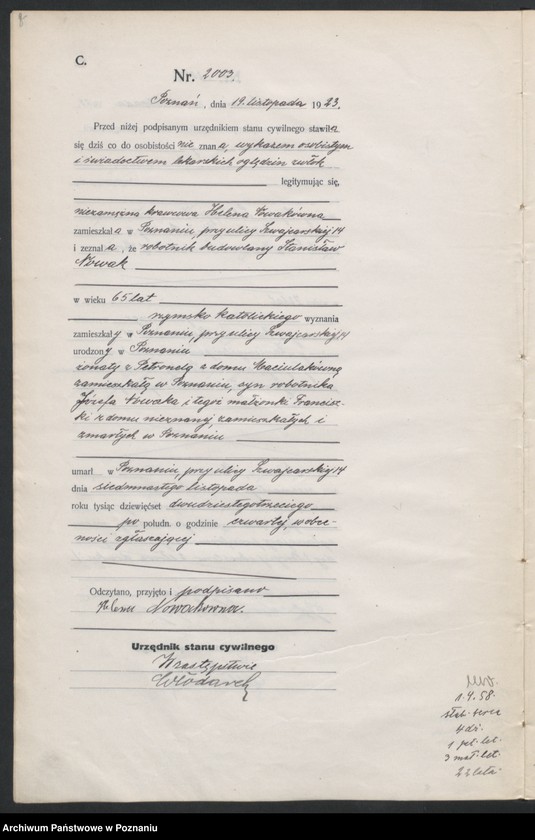 C.
Nr. 2003.
Poznań, dnia 19. listopada 1923.
Przed niżej podpisanym urzędnikiem stanu cywilnego stawiła
się dziś co do osobistości nie znana, wykazem osobistym
i świadectwem lekarskich oględzin zwłok
legitymując się,
niezamężna krawcowa Helena Nowakówna
zamieszkała w Poznaniu, przy ulicy Szwajcarskiej 14
i zeznała, że robotnik budowlany Stanisław
Nowak
w wieku 65 lat
rzymsko katolickiego wyznania
zamieszkały w Poznaniu, przy ulicy Szwajcarskiej 14
urodzony w Poznaniu
żonaty z Petronelą z domu Maciulakówną
zamieszkałą w Poznaniu, syn robotnika
Józefa Nowaka i tegoż małżonki Francisz-
ki z domu nieznanej zamieszkałych i
zmarłych w Poznaniu
umarł w Poznaniu, przy ulicy Szwajcarskiej 14
dnia siedemnastego listopada
roku tysiąc dziewięćset dwudziestegotrzeciego
po połudn. o godzinie czwartej, w obec-
ności zgłaszającej
Odczytano, przyjęto i podpisano
Helena Nowakówna.
Urzędnik stanu cywilnego
W zastępstwie
Włodarek
1.4.58.
4 dz.
3 mał. let.
22 lata
Archiwum Państwowe w Poznaniu